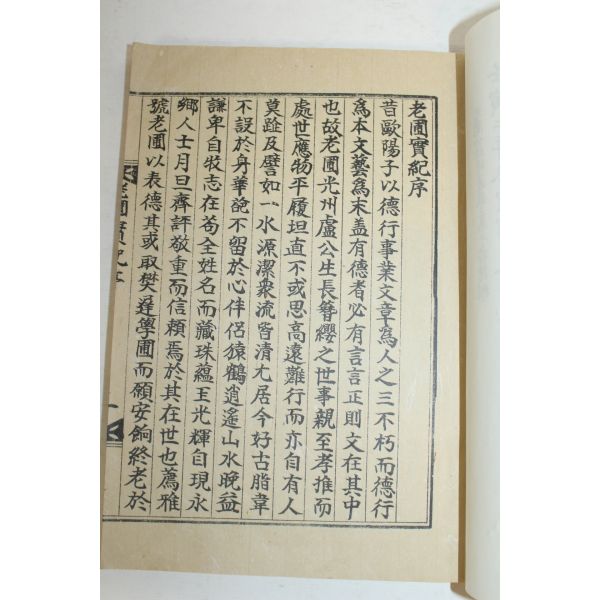 老圃實紀序
昔歐陽子以德行事業文章爲人之三不朽而德行
爲本文藝爲末盖有德者必有言言正則文在其中
也故老圃光州盧公生長簪纓之世事親至孝推而
處世應物平履坦直不或思高遠難行而亦自有人
莫跂及譬如一水源潔衆流皆清尤居今好古脂韋
不設於身華not留於心伴侶猿鶴逍遙山水晚益
謙卑自牧志在苟全姓名而藏珠蘊玉光輝自現永
鄉人士月旦齊評敬重而信賴焉於其在世也薦雅
號老圃以表德其或取樊遲學圃而願安餉終老於
老圃實紀序
一